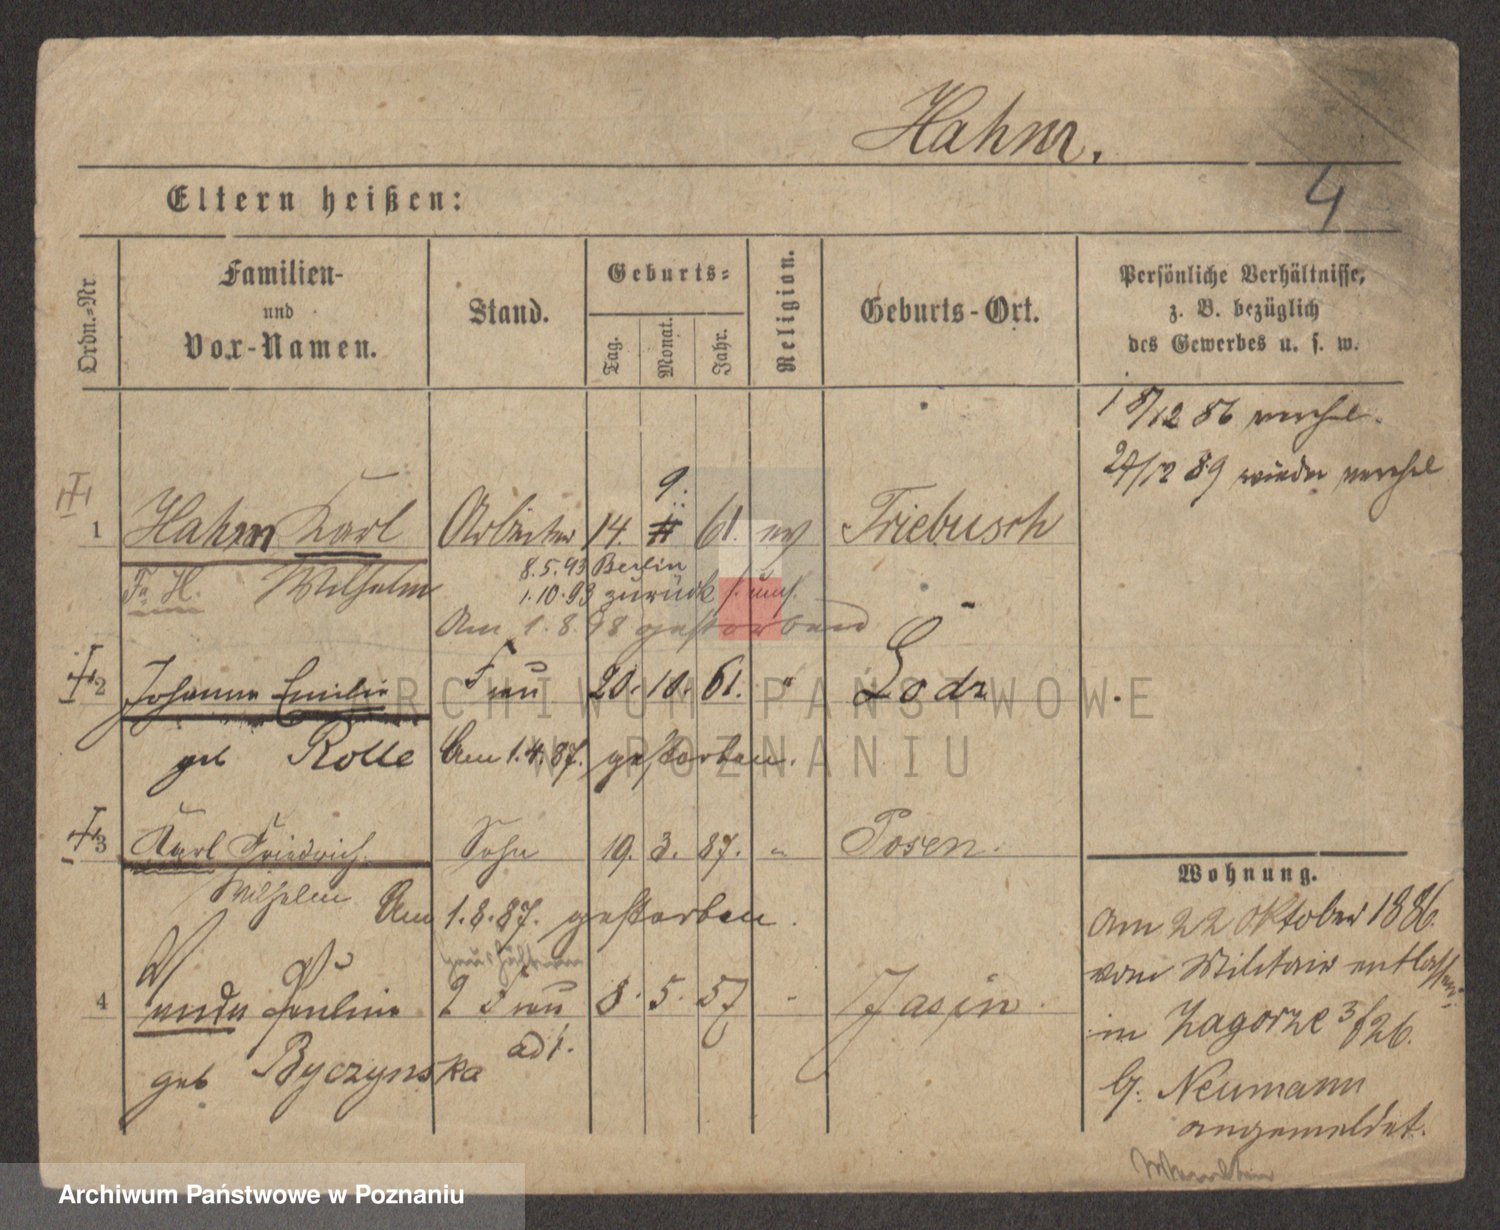 Hahn.
4
Eltern heißen:
Ordn.-Nr.
Familien-
und
Vor-Namen.
Stand.
Geburts-
Tag.
Monat.
Jahr.
Religion.
Geburts-Ort.
Persönliche Verhältnisse,
z. B. bezüglich
des Gewerbes u. s. w.
8/12 86 verehel.
24/12 89 wieder verehel
9.
1 Hahn Karl Arbeiter 14. 61. ev Triebusch
8.5.93 Berlin
Fr. H. Wilhelm 1.10.93 zurück
Am 1.8.98 gestorben
2 Johanna Emilie Frau 20. 10. 61. " Lodz
geb Rolle Am 1.4.87. gestorben.
3 Karl Friedrich Sohn 19. 3. 87. " Posen.
Wilhelm Am 1.8.87. gestorben.
4 Wanda Pauline 2 Frau 8. 5. 57 " Jasin.
ad 1.
geb Byczynska
Wohnung.
Am 22 Oktober 1886.
vom Militair entlassen
in Zagorze 3/26.
b/. Neumann
angemeldet.
ARCHIWUM PAŃSTWOWE
W POZNANIU
Archiwum Państwowe w Poznaniu